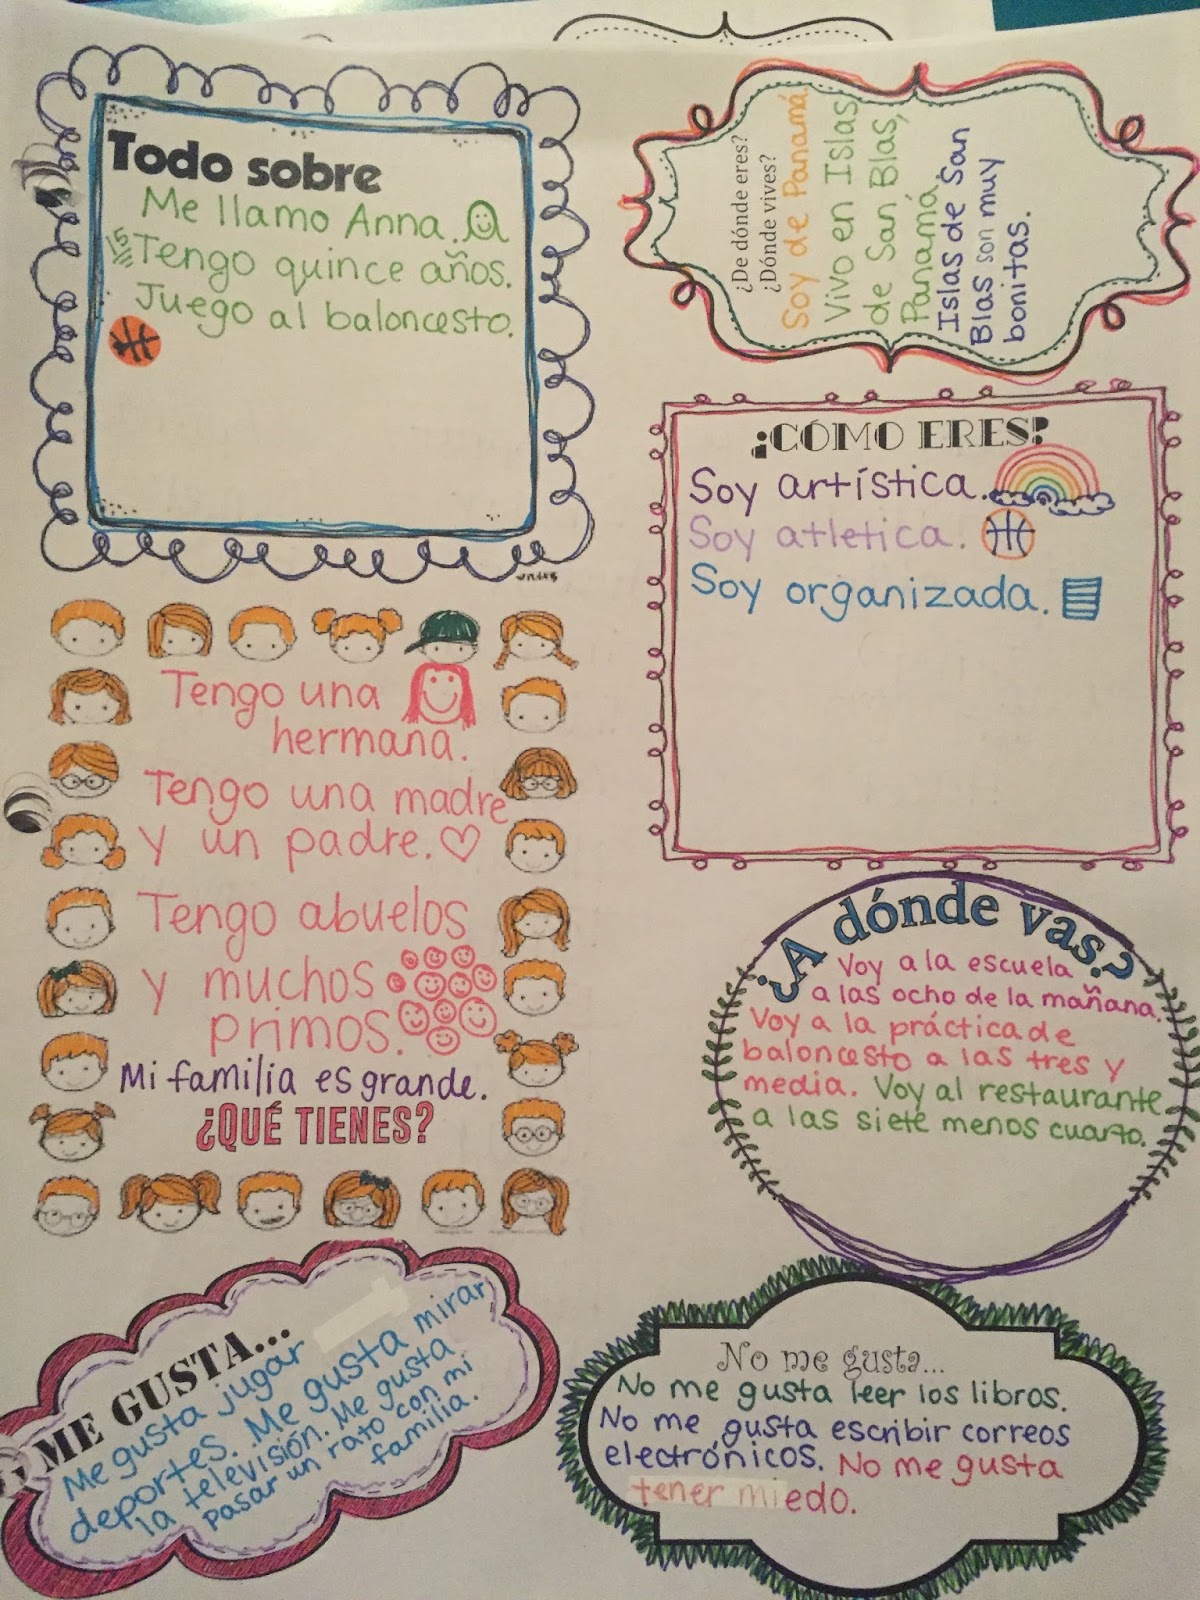 Todo sobre
Me llamo Anna.
15
Tengo quince años.
Juego al baloncesto.
¿De dónde eres?
¿Dónde vives?
Soy de Panamá
Vivo en Islas
de San Blas,
Panamá.
Islas de San
Blas son muy
bonitas.
¿CÓMO ERES?
Soy artística.
Soy atletica.
Soy organizada.
Tengo una
hermana.
Tengo una madre
y un padre.
Tengo abuelos
y muchos
primos.
Mi familia es grande.
¿QUÉ TIENES?
¿A dónde vas?
Voy a la escuela
a las ocho de la mañana.
Voy a la práctica de
baloncesto a las tres y
media. Voy al restaurante
a las siete menos cuarto.
ME GUSTA...
Me gusta jugar
deportes. Me gusta mirar
la televisión. Me gusta
pasar un rato con mi
familia.
No me gusta...
No me gusta leer los libros.
No me gusta escribir correos
electrónicos. No me gusta
tener miedo.